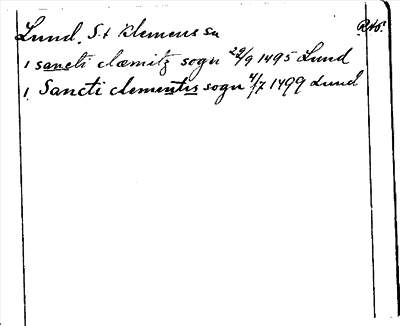 Lund. S:t Klemens sn RAÖ.
i sancti clæmitz sogn 29/9 1495 Lund
i Sancti clementis sogn 4/7 1499 Lund